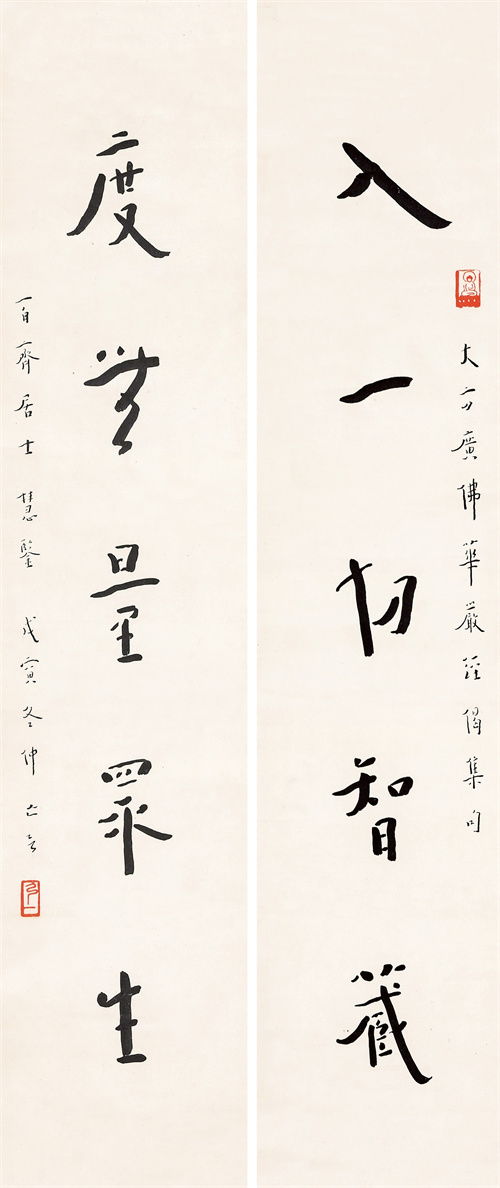 入一切智藏
大方廣佛華嚴經偈集句
度無量眾生
百齊居士慧鑒 戊寅冬仲 亡言
弘一